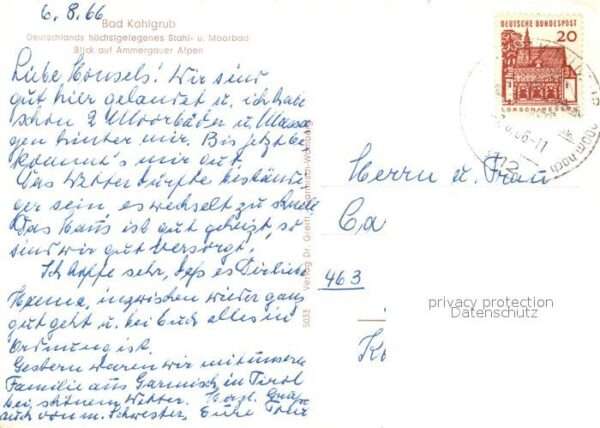 6.8.66
Bad Kohlgrub
Deutschlands höchstgelegenes Stahl- u. Moorbad
Blick auf Ammergauer Alpen
Liebe Hänsels! Wir sind
gut hier gelandet u. ich habe
schon 2 Moorbäder u. Massa
gen hinter mir. Bis jetzt be
kommt's mir gut.
Das Wetter dürfte beständi
ger sein, es wechselt zu schnell
Das Haus ist gut geheizt, so
sind wir gut versorgt.
Ich hoffe sehr, daß es Dir liebe
inzwischen wieder ganz
gut geht u. bei Euch alles in
Ordnung ist.
Gestern waren wir mit unserer
Familie aus Garmisch in Tirol
bei schönem Wetter. Herzl. Grüße
auch von m. Schwester, Eure
5033 Verlag Dr.
DEUTSCHE BUNDESPOST
20
LORSCH/HESSEN
Herrn u. Frau
Ca
463
privacy protection
Datenschutz